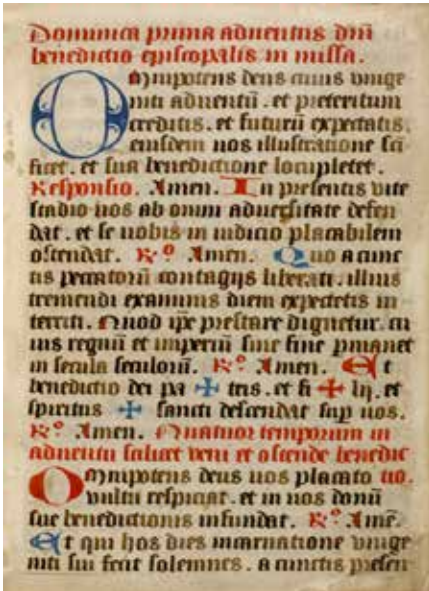 Dominica prima aduentus dnī
benedictio episcopalis in missa.
Omnipotens deus cuius vnige
niti aduentū . et preteritum
creditis . et futurū expectatis .
eiusdem uos illustratione scī
ficet . et sua benedictione locupletet .
Responsio. Amen. In presentis vite
stadio uos ab omni aduersitate defen
dat . et se uobis in iudicio placabilem
ostendat. R⁰ Amen. Quo a cunc
tis peccatorū contagijs liberati . illius
tremendi examinis diem expectetis in
territi. Quod ip̄e prestare dignetur . cu
ius regnū et imperiū sine fine p̄manet
in secula seculorū. R⁰ Amen. Et
benedictio dei pa ✠ tris . et fi ✠ lij . et
spiritus ✠ sancti descendat sup̄ uos .
R⁰ Amen. Quatuor temporum in
aduentu saluet veni et ostende benedic
Omnipotens deus uos placato tio.
vultu respiciat . et in uos donū
sue benedictionis infundat. R⁰ Amē.
Et qui hos dies incarnatione vnige
niti sui fecit solemnes . a cunctis presen